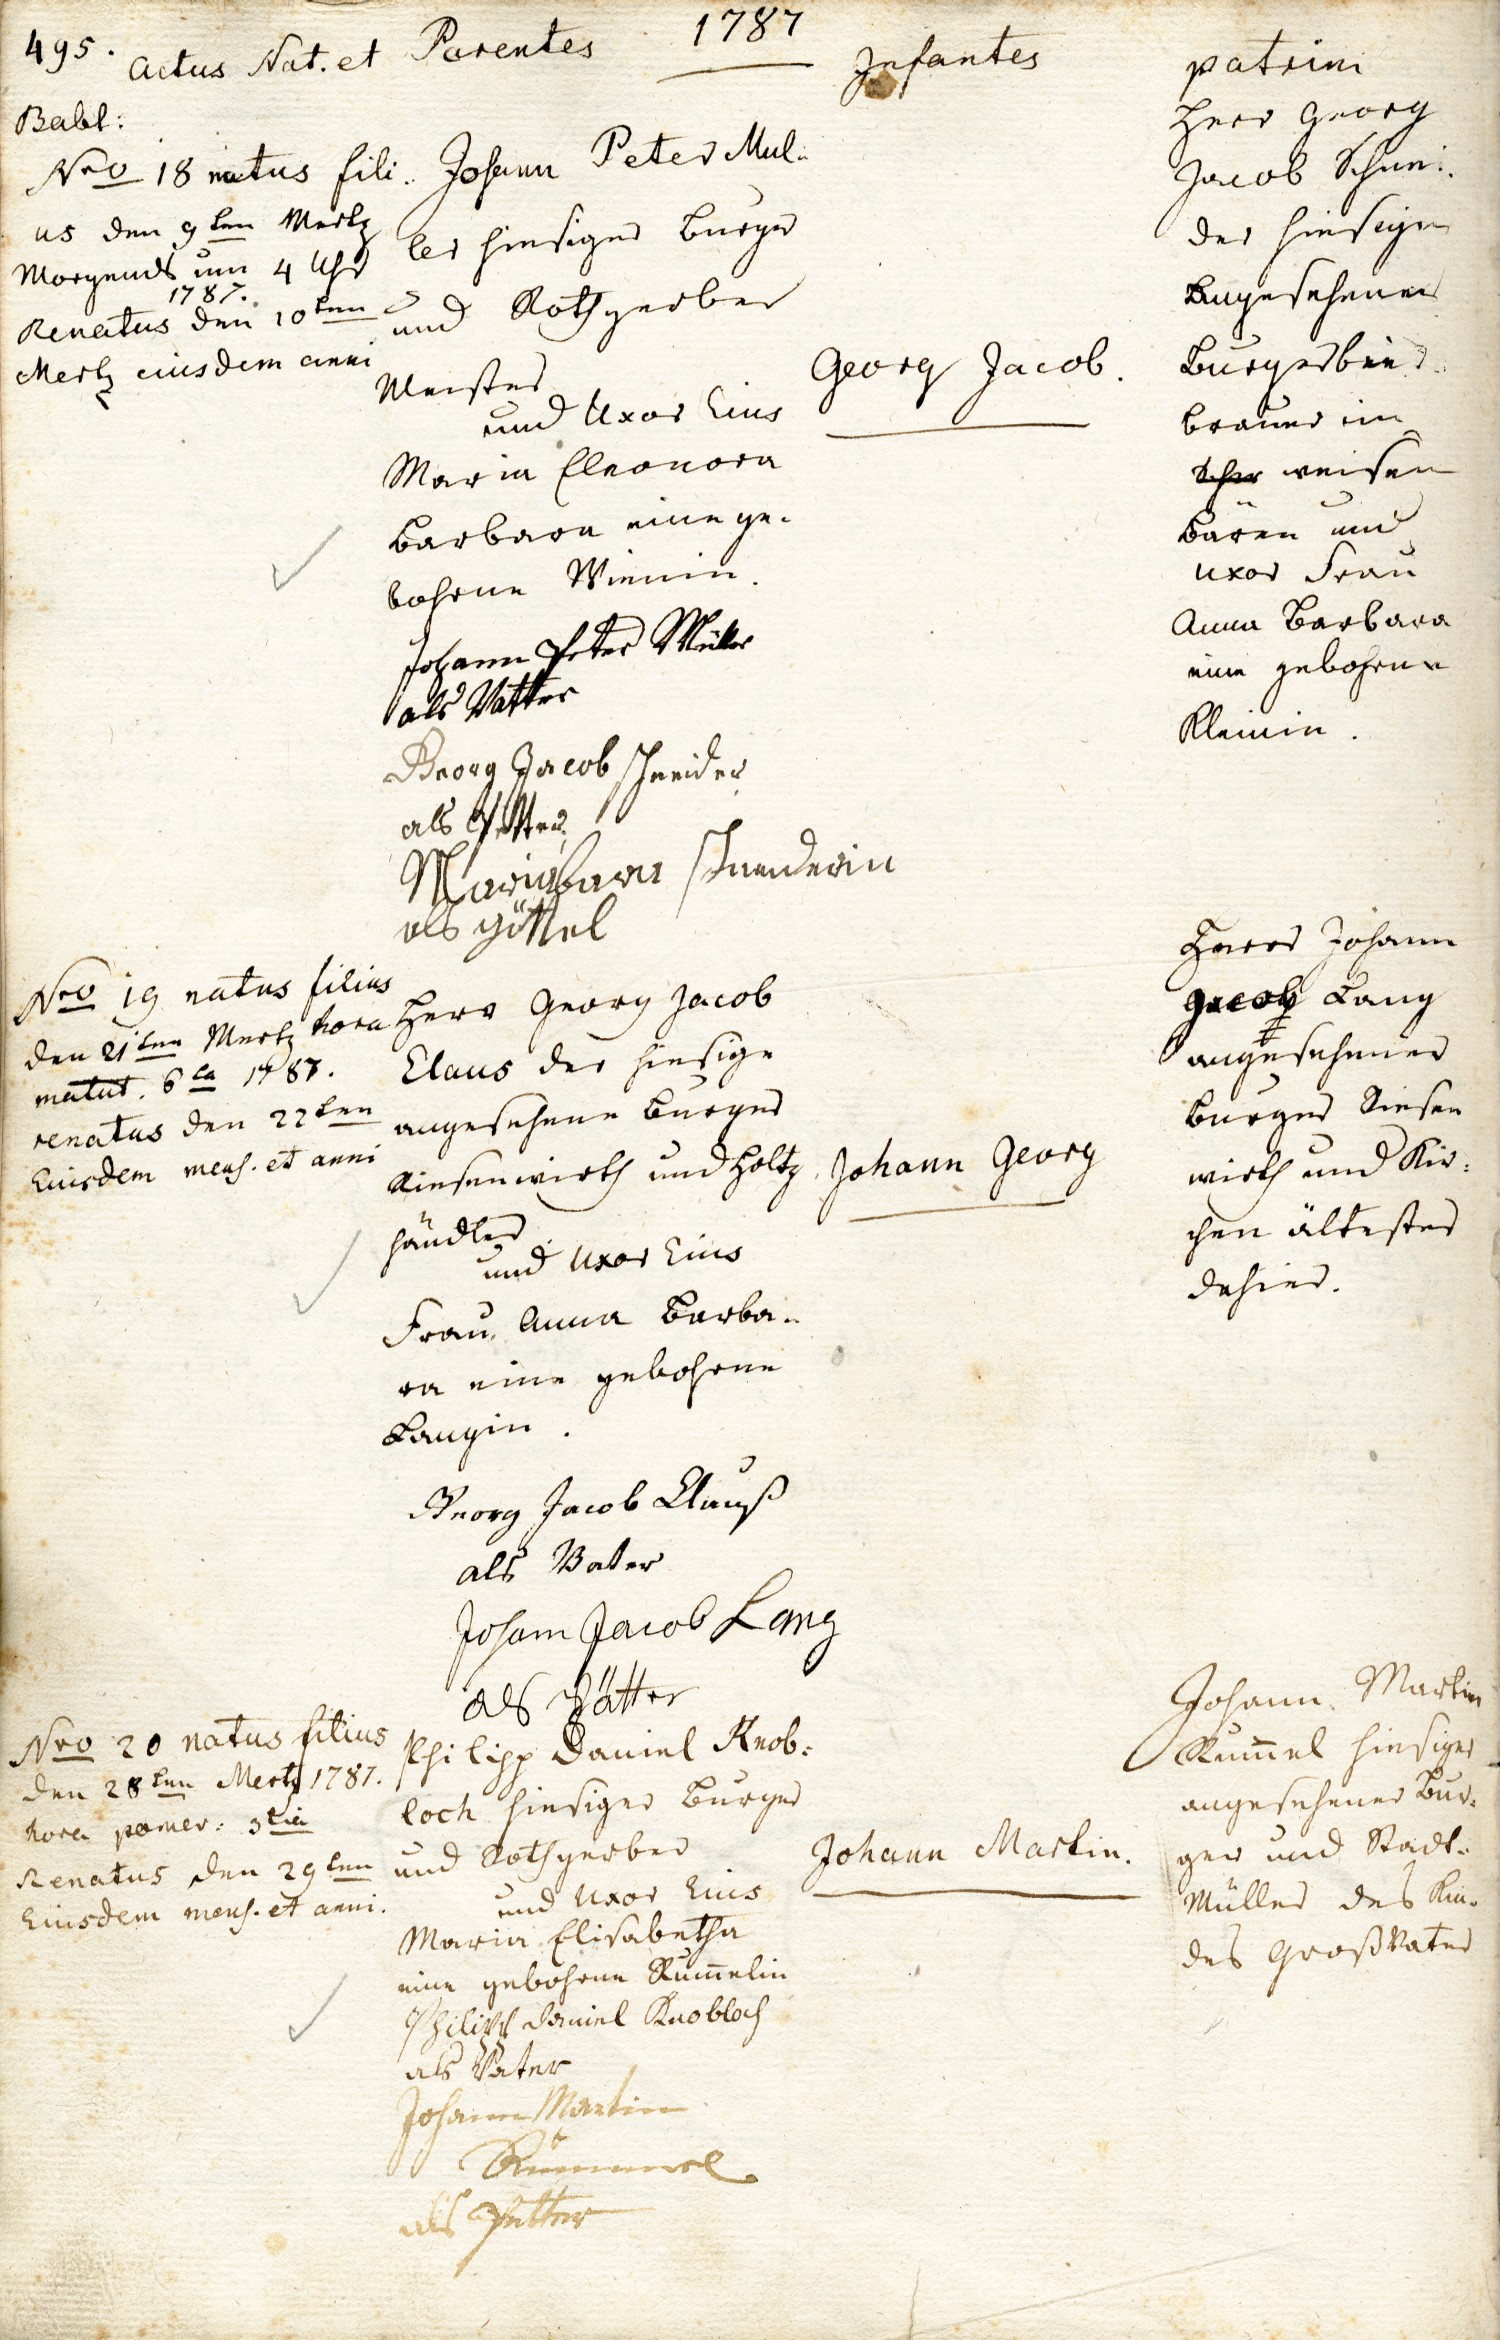 495.
1787
Actus Nat. et
Babt:
Parentes
Infantes
patrini
Nro 18 natus fili..
us den 9ten Mertz
Morgends um 4 Uhr
1787.
Renatus den 10ten
Mertz eiusdem anni
Johann Peter Mul..
ler hiesiger Burger
und Rothgerber
Meister
und Uxor Eius
Maria Eleonora
Barbara eine ge.
bohrne
Johann Peter Müller
als Vatter
Georg Jacob schneider
als Petter
schneiderin
als göttel
Georg Jacob.
Herr Georg
Jacob Schnei..
der hiesiger
angesehener
Burger bier..
brauer im
weisen
Bären und
uxor Frau
Anna Barbara
eine gebohrne
Kleinin.
Nro 19 natus filius
den 21ten Mertz hora
matut. 6ta 1787.
renatus den 22ten
Eiusdem mens. et anni
Herr Georg Jacob
Claus der hiesige
angesehene Burger
Riesenwirth und Holtz
händler
und Uxor Eius
Frau Anna Barba..
ra eine gebohrne
Langin.
Georg Jacob Clauß
als Vater
Johann Jacob Lang
als Pätter
Johann Georg
Herr Johann
Jacob Lang
angesehener
Burger Riesen
wirth und Kir:
chen ältester
dahier.
Nro 20 natus filius
den 28ten Mertz 1787.
hora pomer: 3tia
Renatus den 29ten
Eiusdem mens. et anni.
Philipp Daniel Knob:
loch hiesiger Burger
und Rothgerber
und Uxor Eius
Maria Elisabetha
eine gebohrne Rum̄elin
Philipp Daniel Knobloch
als Vater
Johann Martin
Rümmel
als Petter
Johann Martin.
Johann Martin
Rum̄el hiesiger
angesehener Bur.
ger und Stadt.
Müller des Kin.
des GroßVater